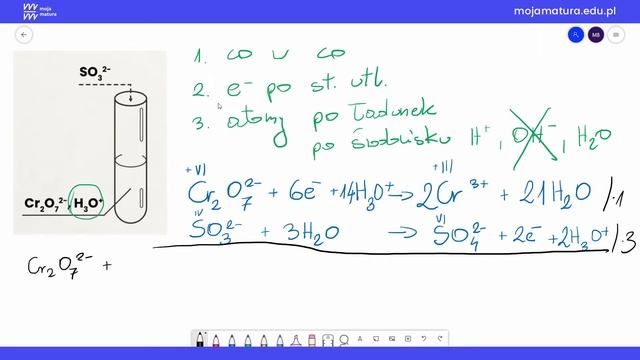 moja
matura
mojamatura.edu.pl
MB
SO₃²⁻
Cr₂O₇²⁻, H₃O⁺
1. co w co
2. e⁻ po st. utl.
3. atomy po ładunek
po środowisku H⁺, OH⁻, H₂O
+VI +III
Cr₂O₇²⁻ + 6e⁻ + 14H₃O⁺ → 2Cr³⁺ + 21H₂O /·1
IV VI
SO₃²⁻ + 3H₂O → SO₄²⁻ + 2e⁻ + 2H₃O⁺ /·3
Cr₂O₇²⁻ +